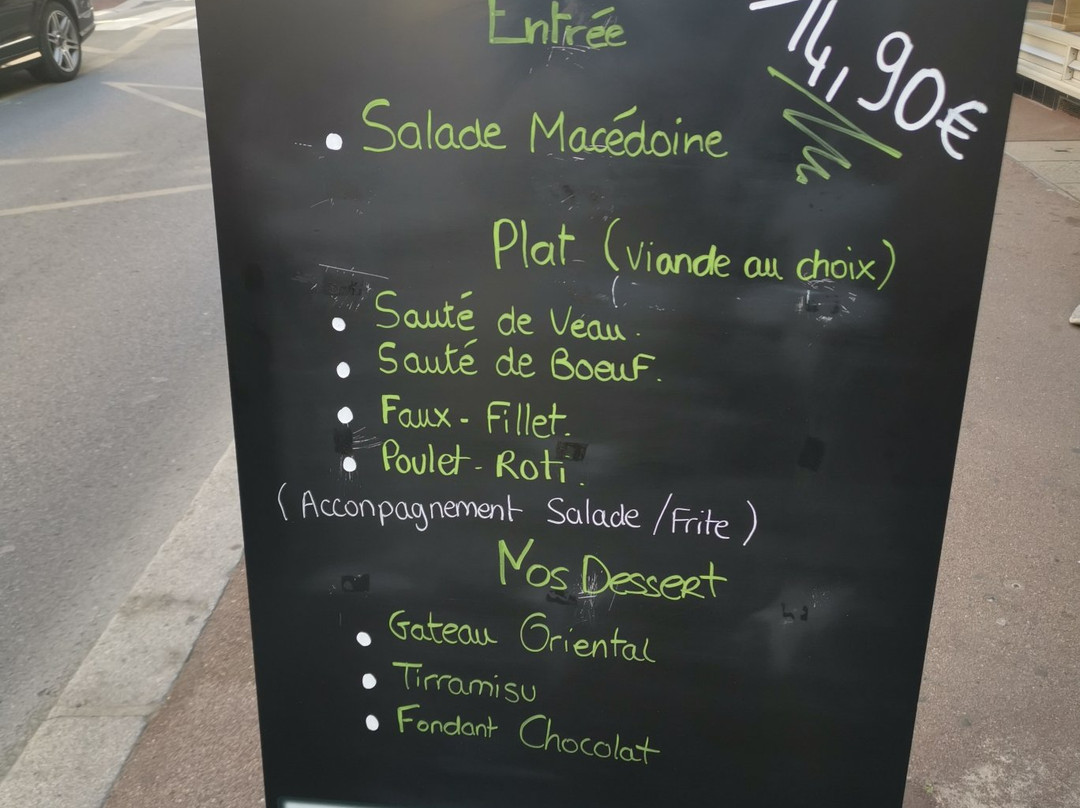 Entrée
14,90€
Salade Macédoine
Plat (viande au choix)
Sauté de Veau.
Sauté de Boeuf.
Faux-Fillet.
Poulet-Roti.
(Acconpagnement Salade/Frite)
Nos Dessert
Gateau Oriental
Tirramisu
Fondant Chocolat